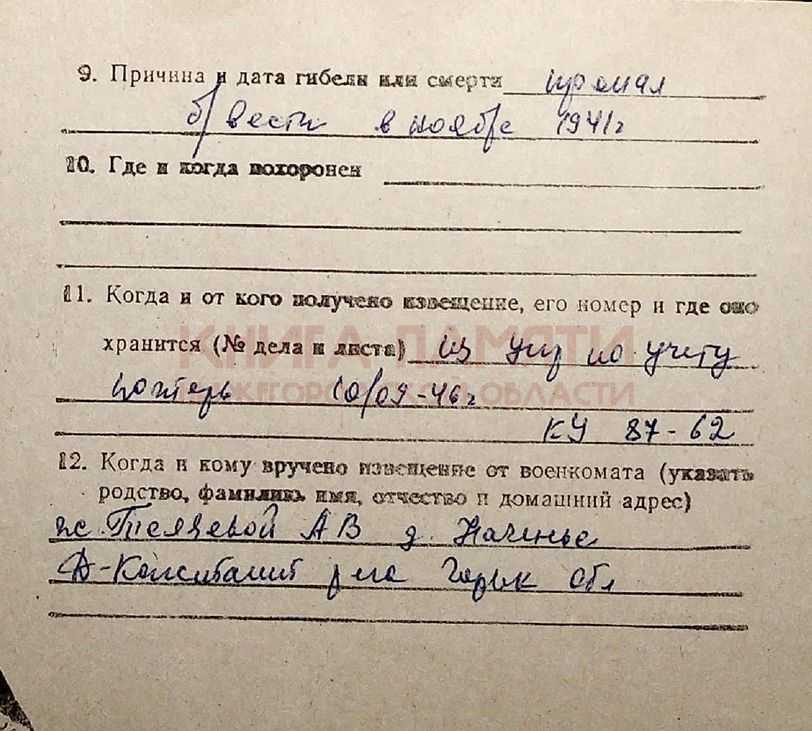 9. Причина и дата гибели или смерти пропал
б/вести в ноябре 1941г
10. Где и когда похоронен
11. Когда и от кого получено извещение, его номер и где оно
КНИГА ПАМЯТИ
хранится (№ дела и листа) из упр по учету
НИЖЕГОРОДСКОЙ ОБЛАСТИ
потерь 10/09-46г
КУ 87-62
12. Когда и кому вручено извещение от военкомата (указать
родство, фамилию, имя, отчество и домашний адрес)
А В д.
Д-Константин р-на Горьк обл